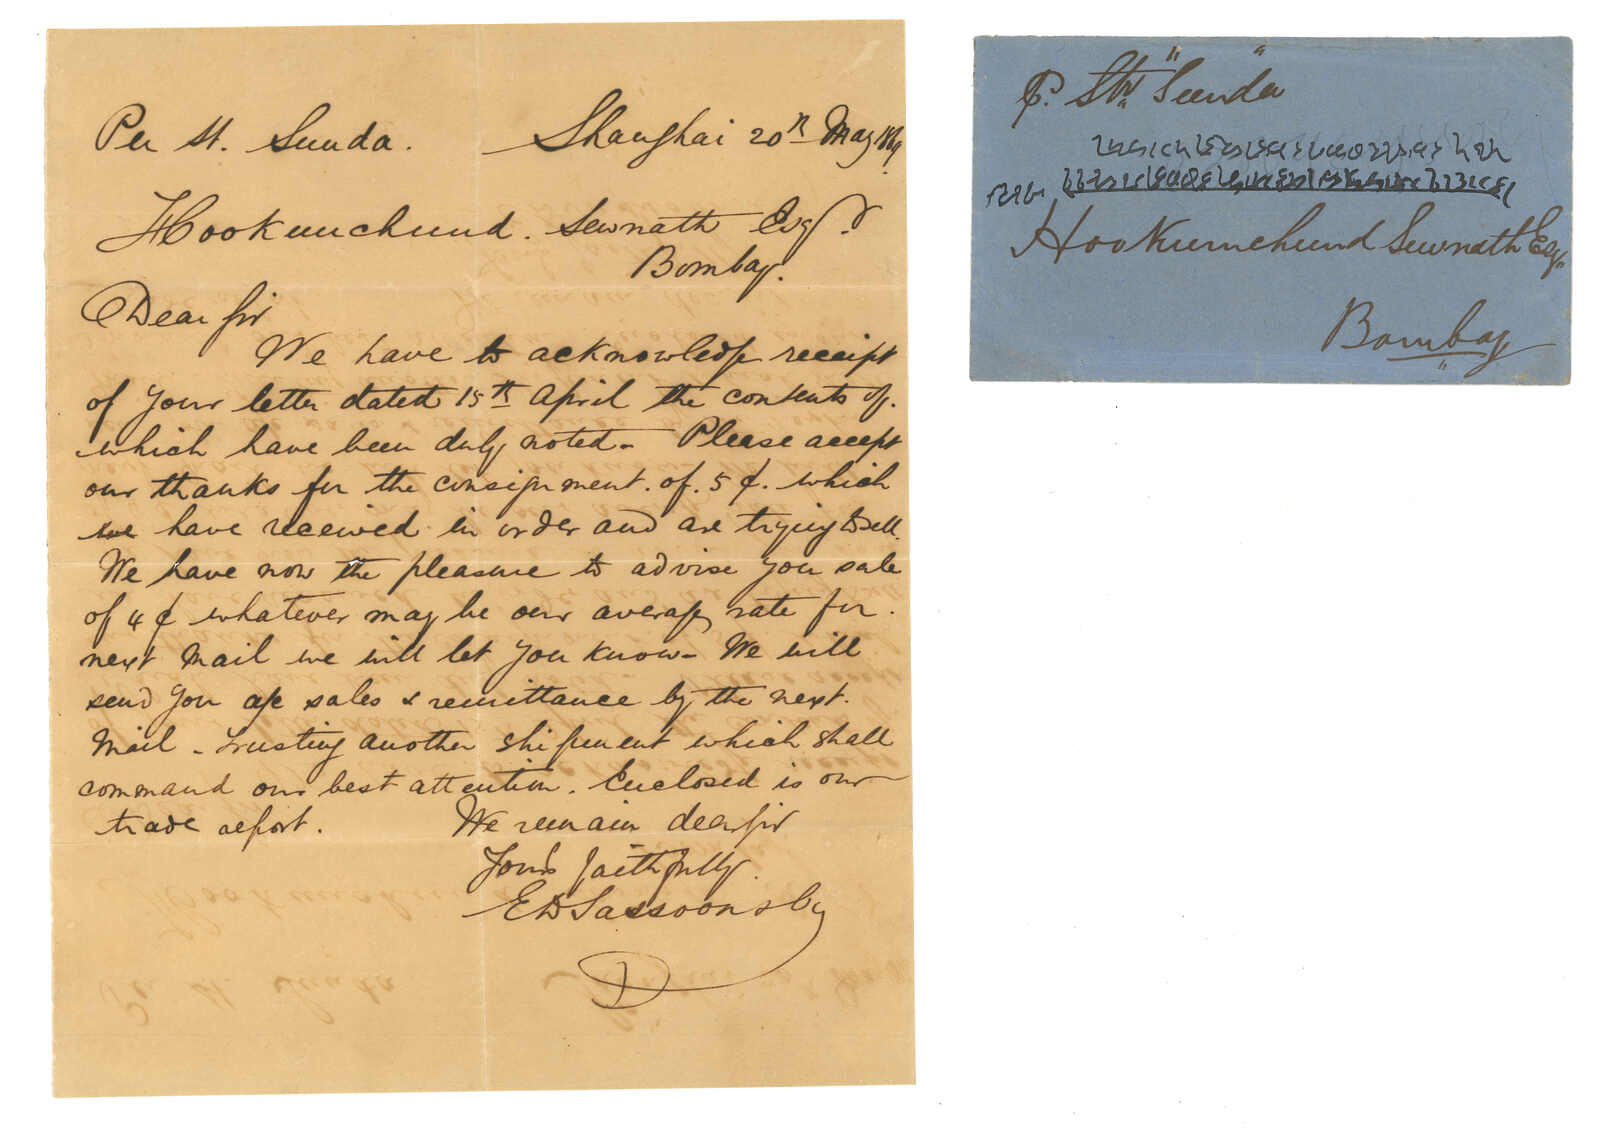 Per St. Sunda. Shanghai 20th May 1869
Hookumchund. Sewnath Esqr.
Bombay.
Dear Sir
We have to acknowledge receipt
of your letter dated 15th April the contents of.
which have been duly noted - Please accept
our thanks for the consignment. of. 5 ₵. which
we have received in order and are trying to sell.
We have now the pleasure to advise you sale
of 4 ₵ whatever may be our average rate for.
next Mail we will let you know - We will
send you a/c sales & remittance by the next.
Mail - Trusting another shipment which shall
command our best attention. Enclosed is our
trade report. We remain dear Sir
Yours faithfully.
ED Sassoon & Co
P. Str "Sunda"
Hookumchund Sewnath Esqr
Bombay